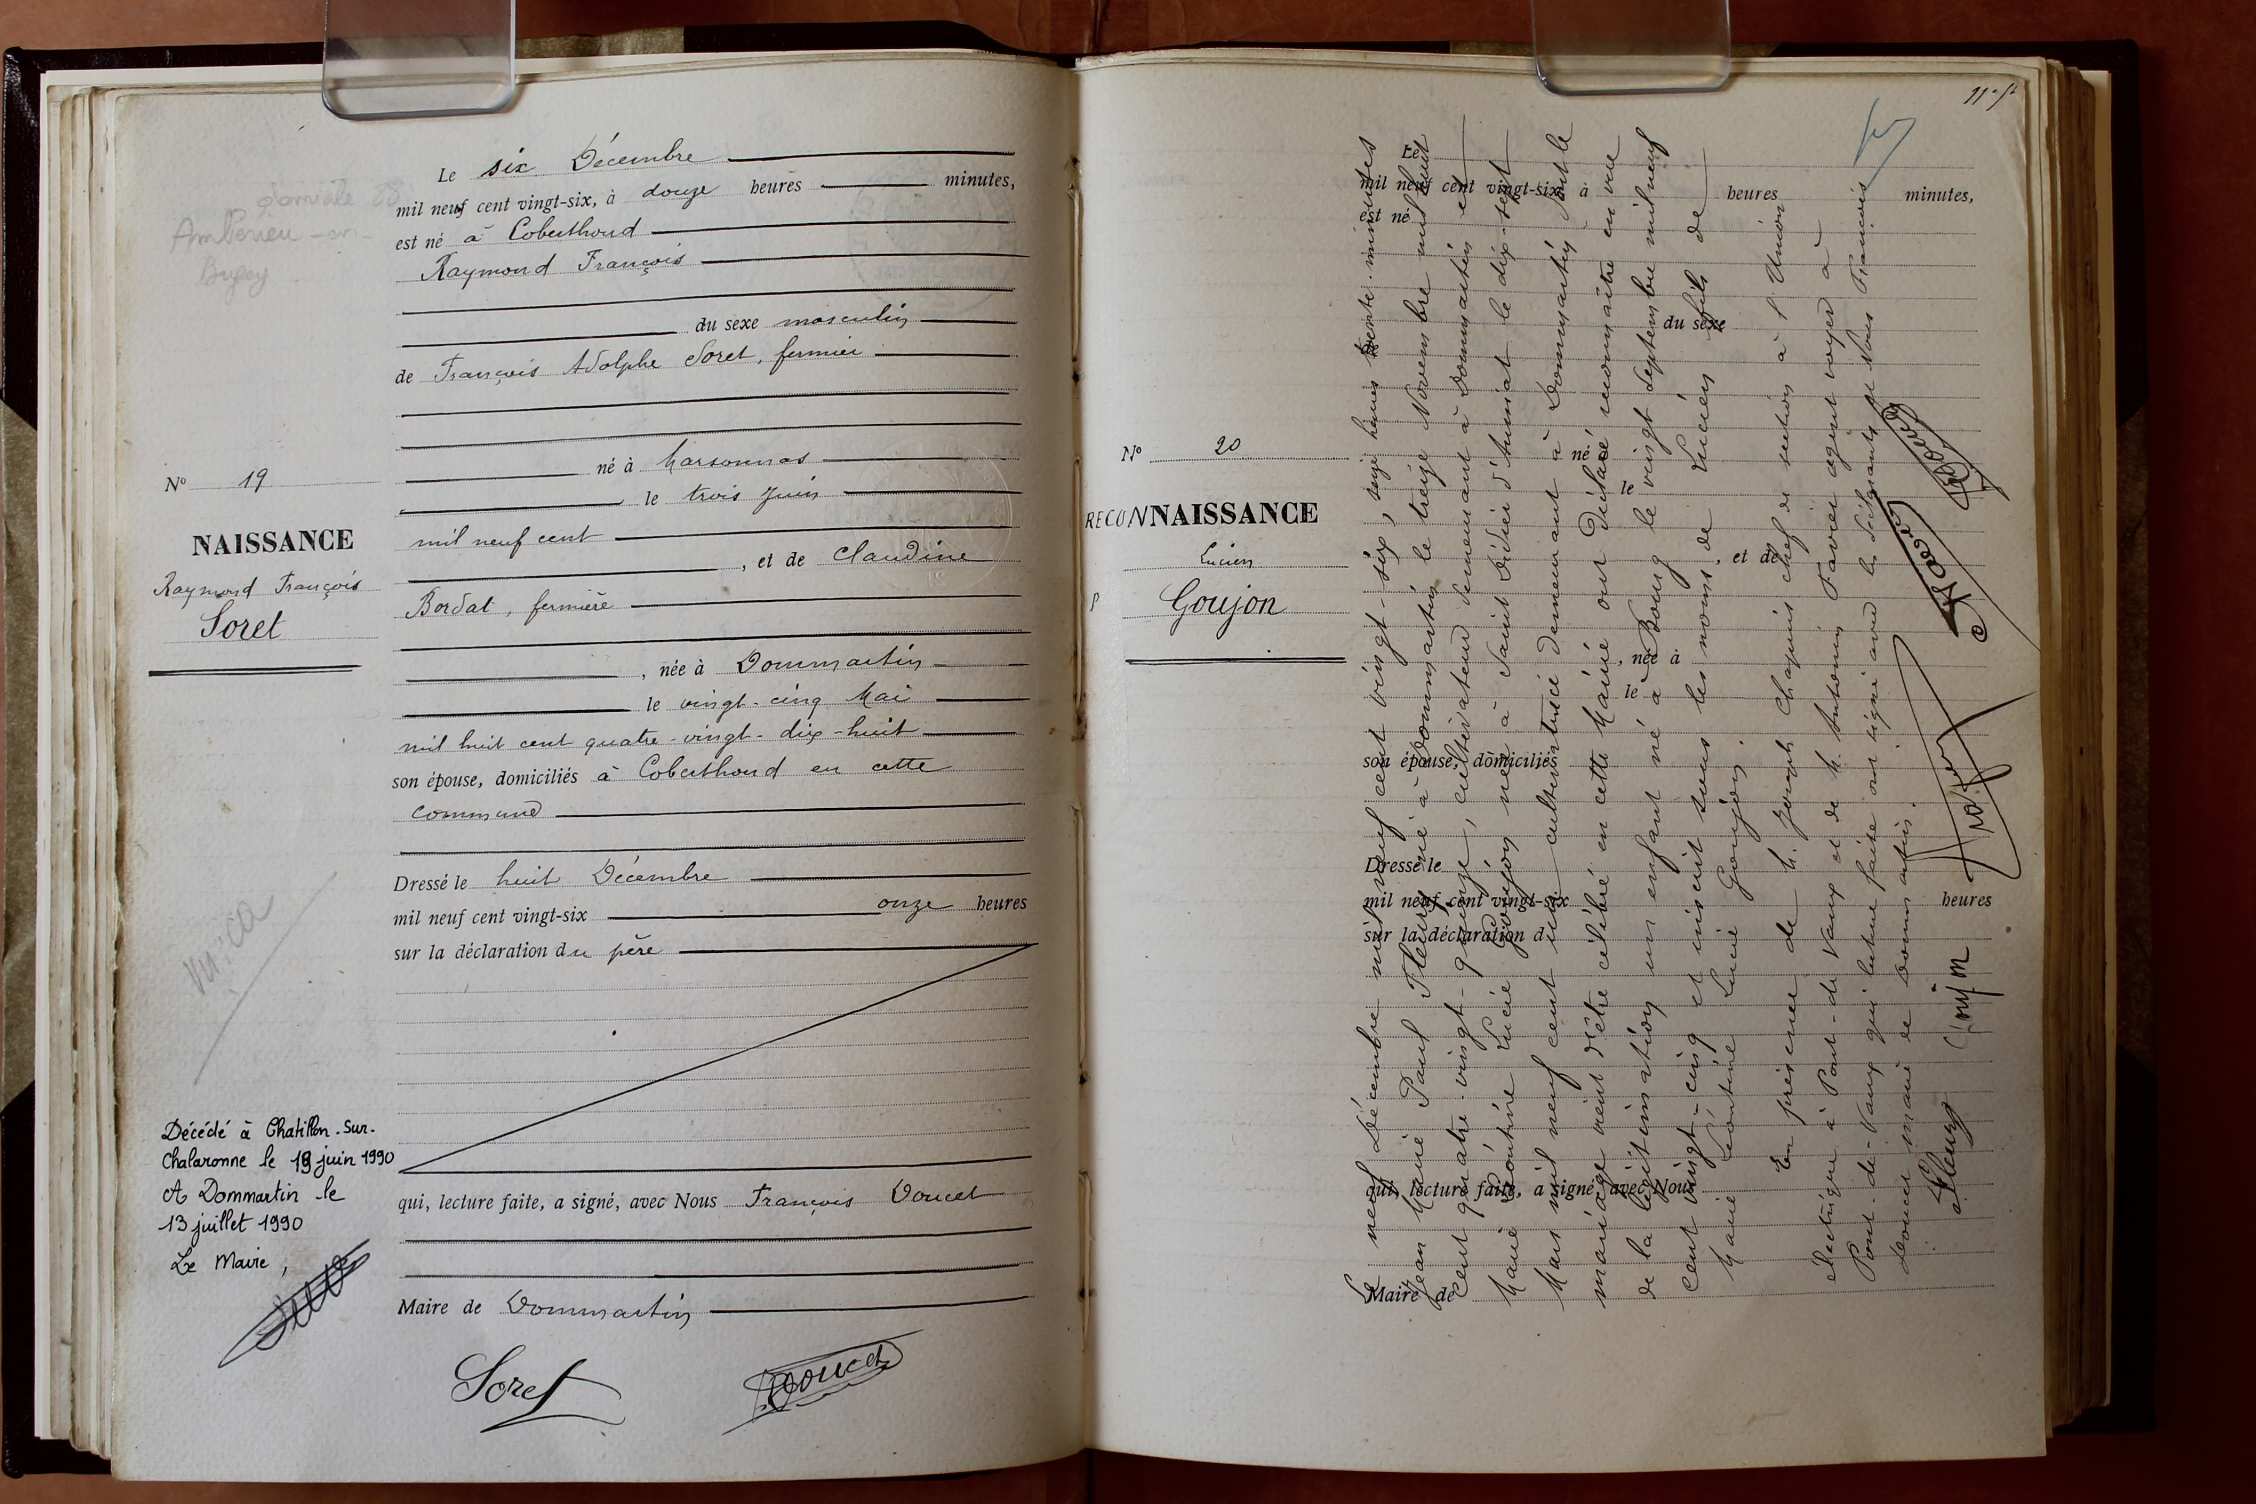 Le six Décembre
mil neuf cent vingt-six, à douze heures minutes,
est né à Coberthoud
Raymond François
du sexe masculin
de François Adolphe Soret, fermier
né à Marsonnas
le trois Juin
mil neuf cent
, et de Claudine
Bordat, fermière
, née à Dommartin
le vingt-cinq Mai
mil huit cent quatre-vingt-dix-huit
son épouse, domiciliés à Coberthoud en cette
commune
Dressé le huit Décembre
mil neuf cent vingt-six onze heures
sur la déclaration du père
qui, lecture faite, a signé, avec Nous François Doucet
Maire de Dommartin
Soret
Doucet
Ambérieu-en-
Bugey
N° 19
NAISSANCE
Raymond François
Soret
mica
Décédé à Chatillon-sur-
Chalaronne le 19 juin 1990
A Dommartin le
13 juillet 1990
Le Maire,
N° 20
RECONNAISSANCE
Lucien
Goujon
Le
mil neuf cent vingt-six à heures minutes,
est né
du sexe
né à
le
, et de
, née à
le
son épouse, domiciliés
Dressé le
mil neuf cent vingt-six heures
sur la déclaration d
qui, lecture faite, a signé, avec Nous
Maire de
Le neuf Décembre mil neuf cent vingt-six, seize heures trente minutes
Jean Marie Paul Fleury, né à Dommartin le treize Novembre mil huit
cent quatre-vingt-quinze, cultivateur demeurant à Dommartin et
Marie Léontine Lucie Goujon née à Saint Didier d'Aussiat le dix-sept
Mars mil neuf cent une cultivatrice demeurant à Dommartin dont le
mariage vient d'être célébré en cette Mairie ont déclaré reconnaître en vue
de la légitimation un enfant né à Bourg le vingt Septembre mil neuf
cent vingt-cinq et inscrit sous les noms de Lucien fils de
Marie Léontine Lucie Goujon.
En présence de M. Joseph Chapuis chef de section à l'Union
électrique à Pont-de-Vaux et de M. Antonin Favier agent voyer à
Pont-de-Vaux qui lecture faite ont signé avec les déclarants et Nous François
Doucet maire de Dommartin.
Fleury
Goujon
Favier
Doucet